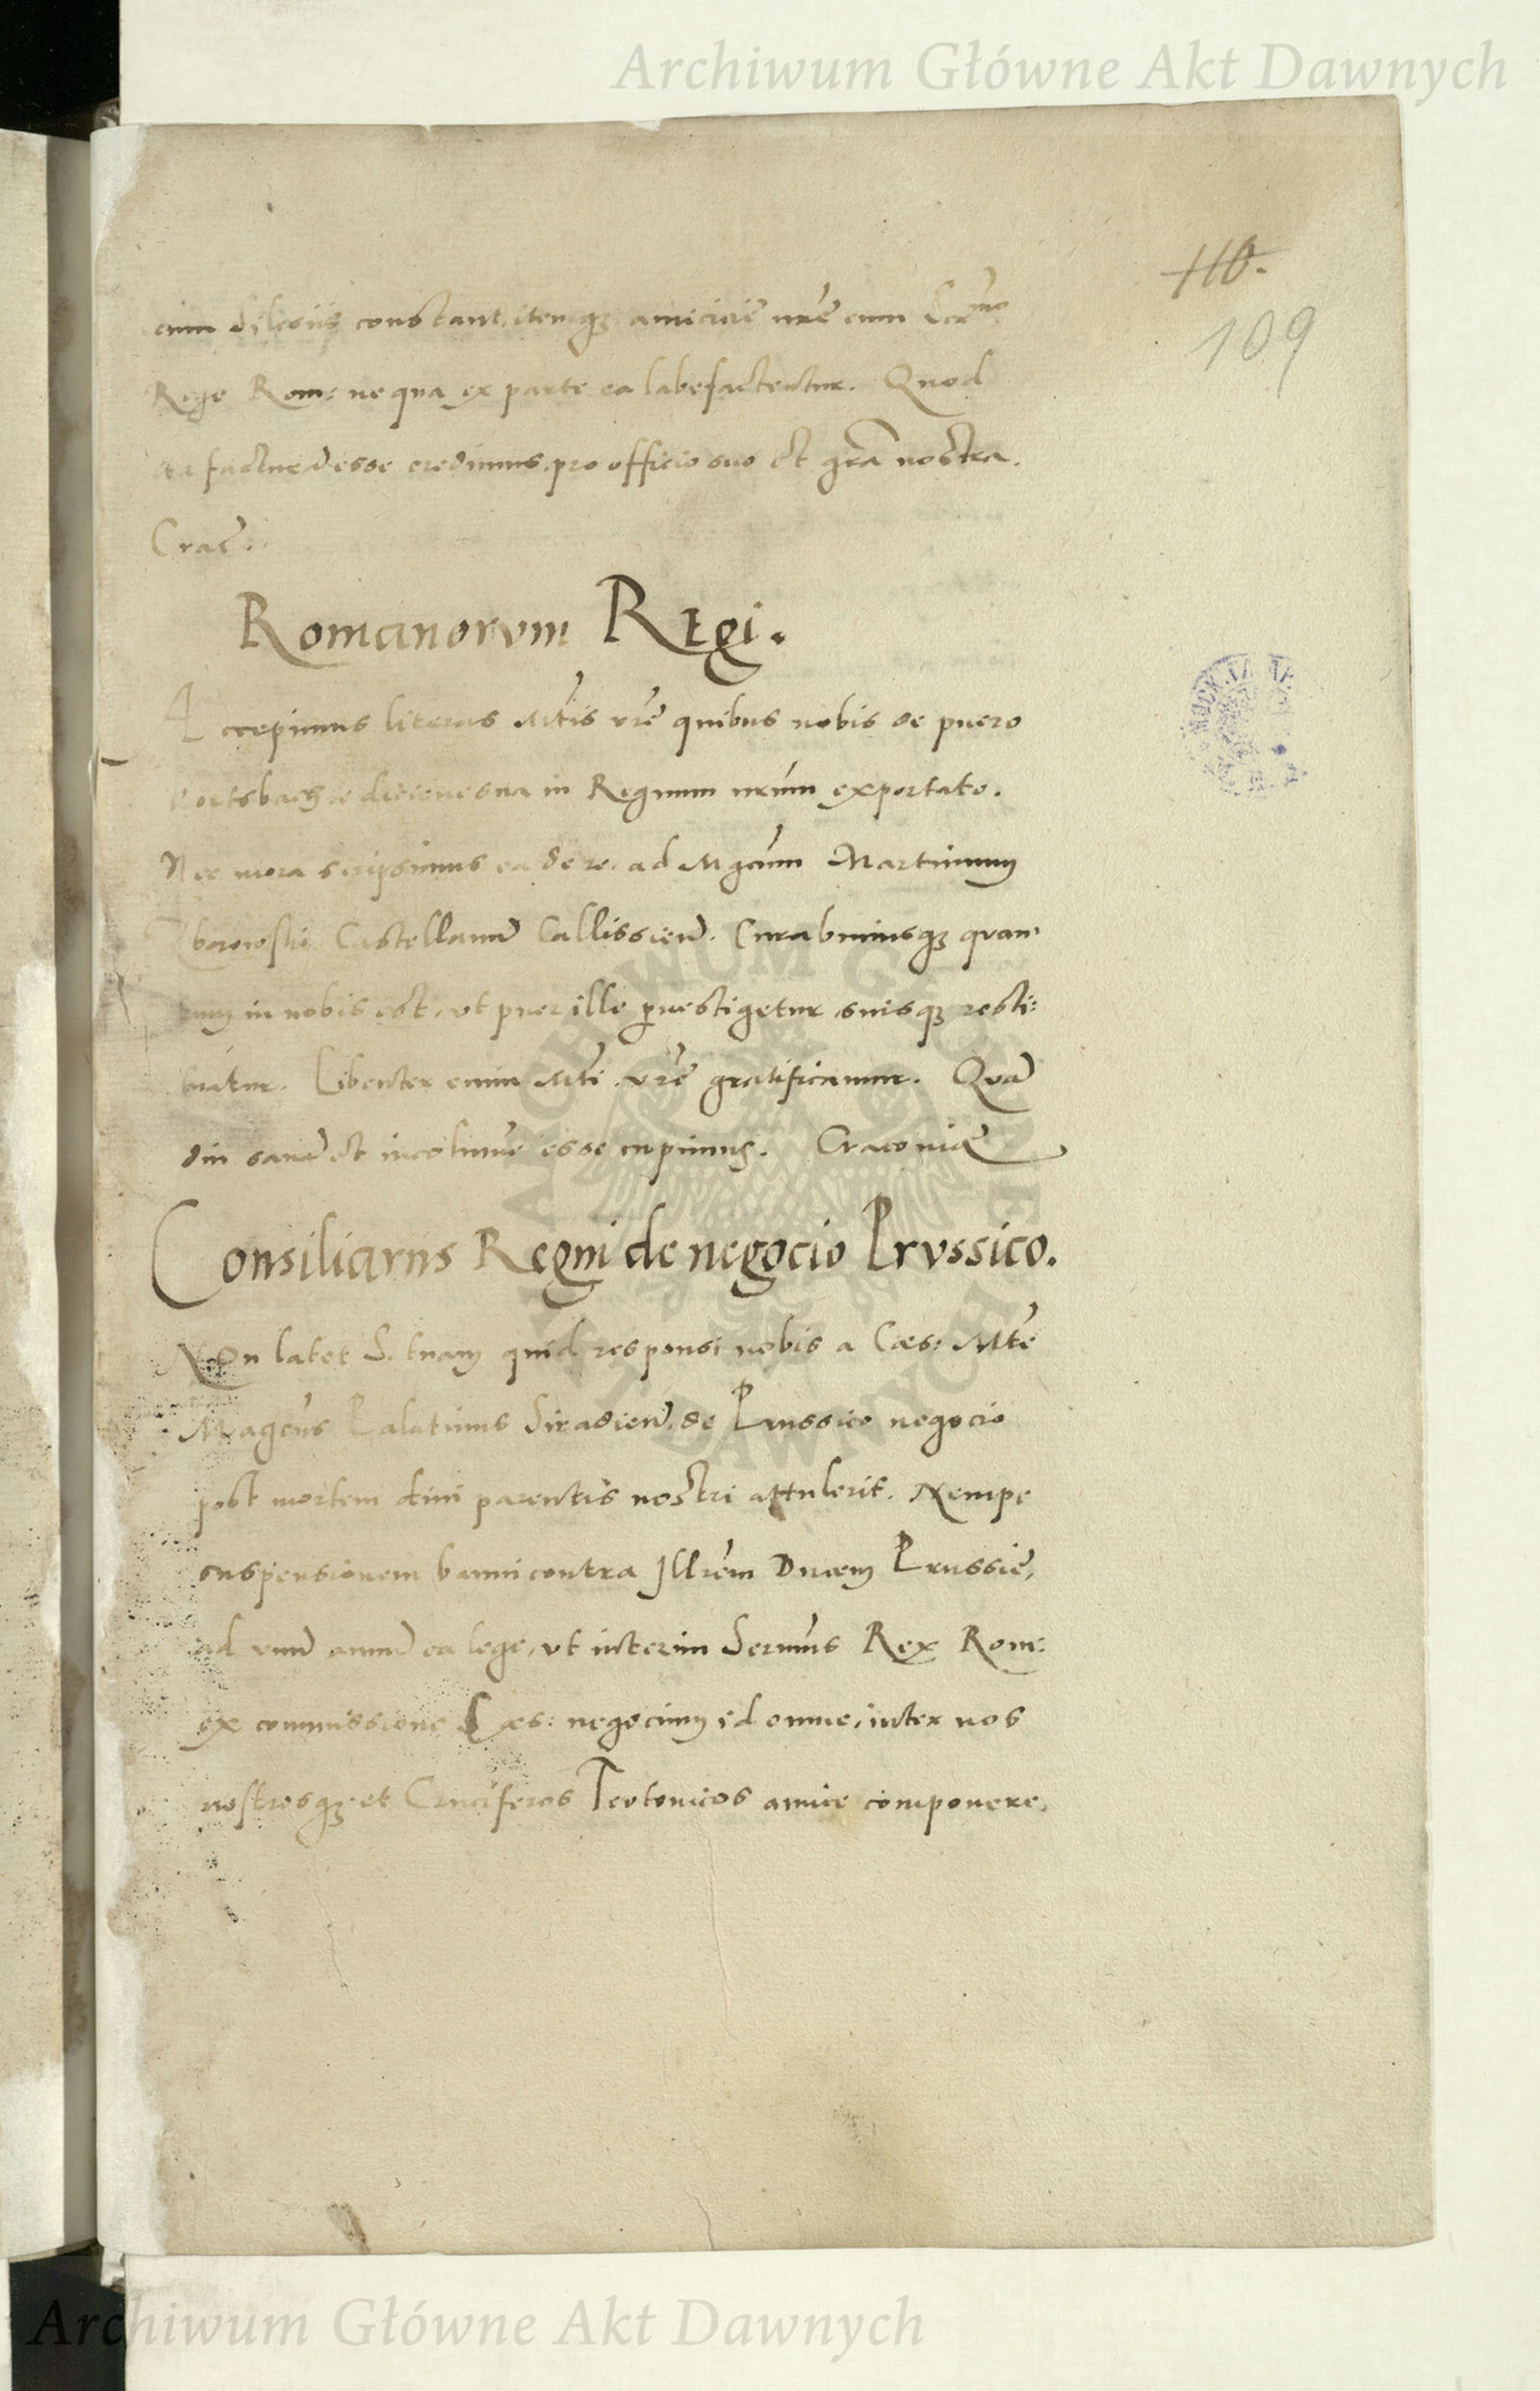 Archiwum Główne Akt Dawnych
110.
109
cum Silesiis constant, itemq; amicicie nrẽ cum Sermo
Rege Rom: ne qua ex parte ea labefactentur. Quod
ita facturũ esse credimus, pro officio suo et grã nostra.
Crac̃.
Romanorvm Regi.
Accepimus literas Mtis vrẽ quibus nobis de puero
in Regnum nrũm exportato.
Nec mora scripsimus ea de re, ad Mgcũm Martinum
Zborowski Castellanũ Callissieñ. Curabimusq; quan-
tum in nobis est, ut puer ille pvestigetur suisq; resti:
tuatur. Libenter enim Mti vrẽ gratificamur. Quã
diu sanã et incolumẽ esse cupimus. Cracoviæ
Consiliariis Regni de negocio Prvssico.
Non latet S. tuam quid responsi nobis a Cæs: Mte
Magcus Palatinus Siradieñ, de Prussico negocio
post mortem divi parentis nostri attulerit. Nempe
suspensionem banni contra Illrem Ducem Prussiẽ,
ad unũ annũ ea lege, ut interim Sermus Rex Rom:
ex commissione Cæs: negocium id omne, inter nos
nostrosq; et Cruciferos Teotonicos amice componere,
Archiwum Główne Akt Dawnych